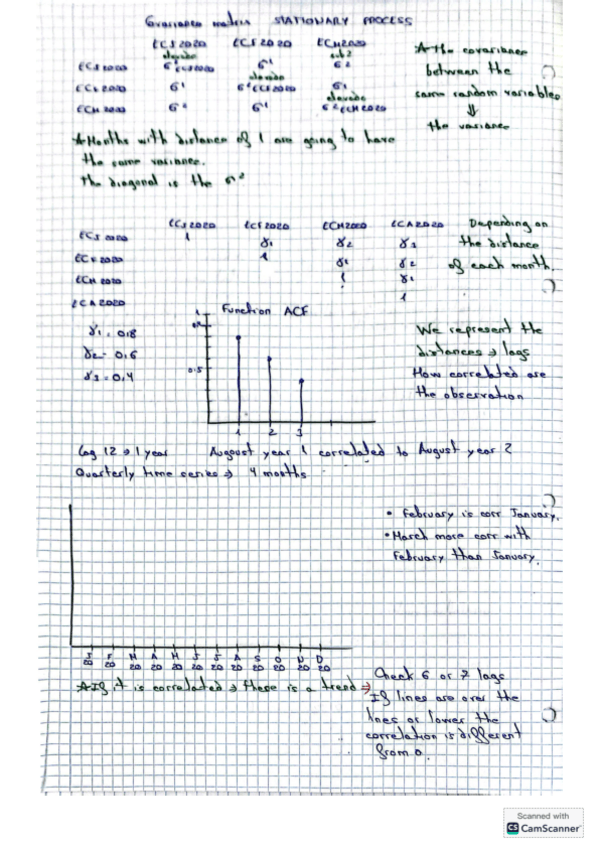 Covariance matrix STATIONARY PROCESS
ECJ2020 ECF2020 ECM2020
elevado sub2
ECJ2020 σ²ECJ2020 σ¹ σ²
elevado
ECF2020 σ¹ σ²ECF2020 σ¹
elevado
ECM2020 σ² σ¹ σ²ECM2020
* the covariance
between the
same random variables
⇓
the variance
* Months with distance of 1 are going to have
the same variance.
The diagonal is the σ²
ECJ2020 ECF2020 ECM2020 ECA2020
ECJ2020 1 γ1 γ2 γ3
ECF2020 1 γ1 γ2
ECM2020 1 γ1
ECA2020 1
Depending on
the distance
of each month.
γ1 = 0,8
γ2 = 0,6
γ3 = 0,4
Function ACF
1
0.5
1 2 3
We represent the
distances → lags
How correlated are
the observation
Lag 12 → 1 year August year 1 correlated to August year 2
Quarterly time series → 4 months
• February is corr January.
• March more corr with
February than January.
J F M A M J J A S O N D
20 20 20 20 20 20 20 20 20 20 20
* If it is correlated → there is a trend →
Check 6 or 7 lags
If lines are over the
lines or lower the
correlation is different
from 0.
Scanned with
CS CamScanner